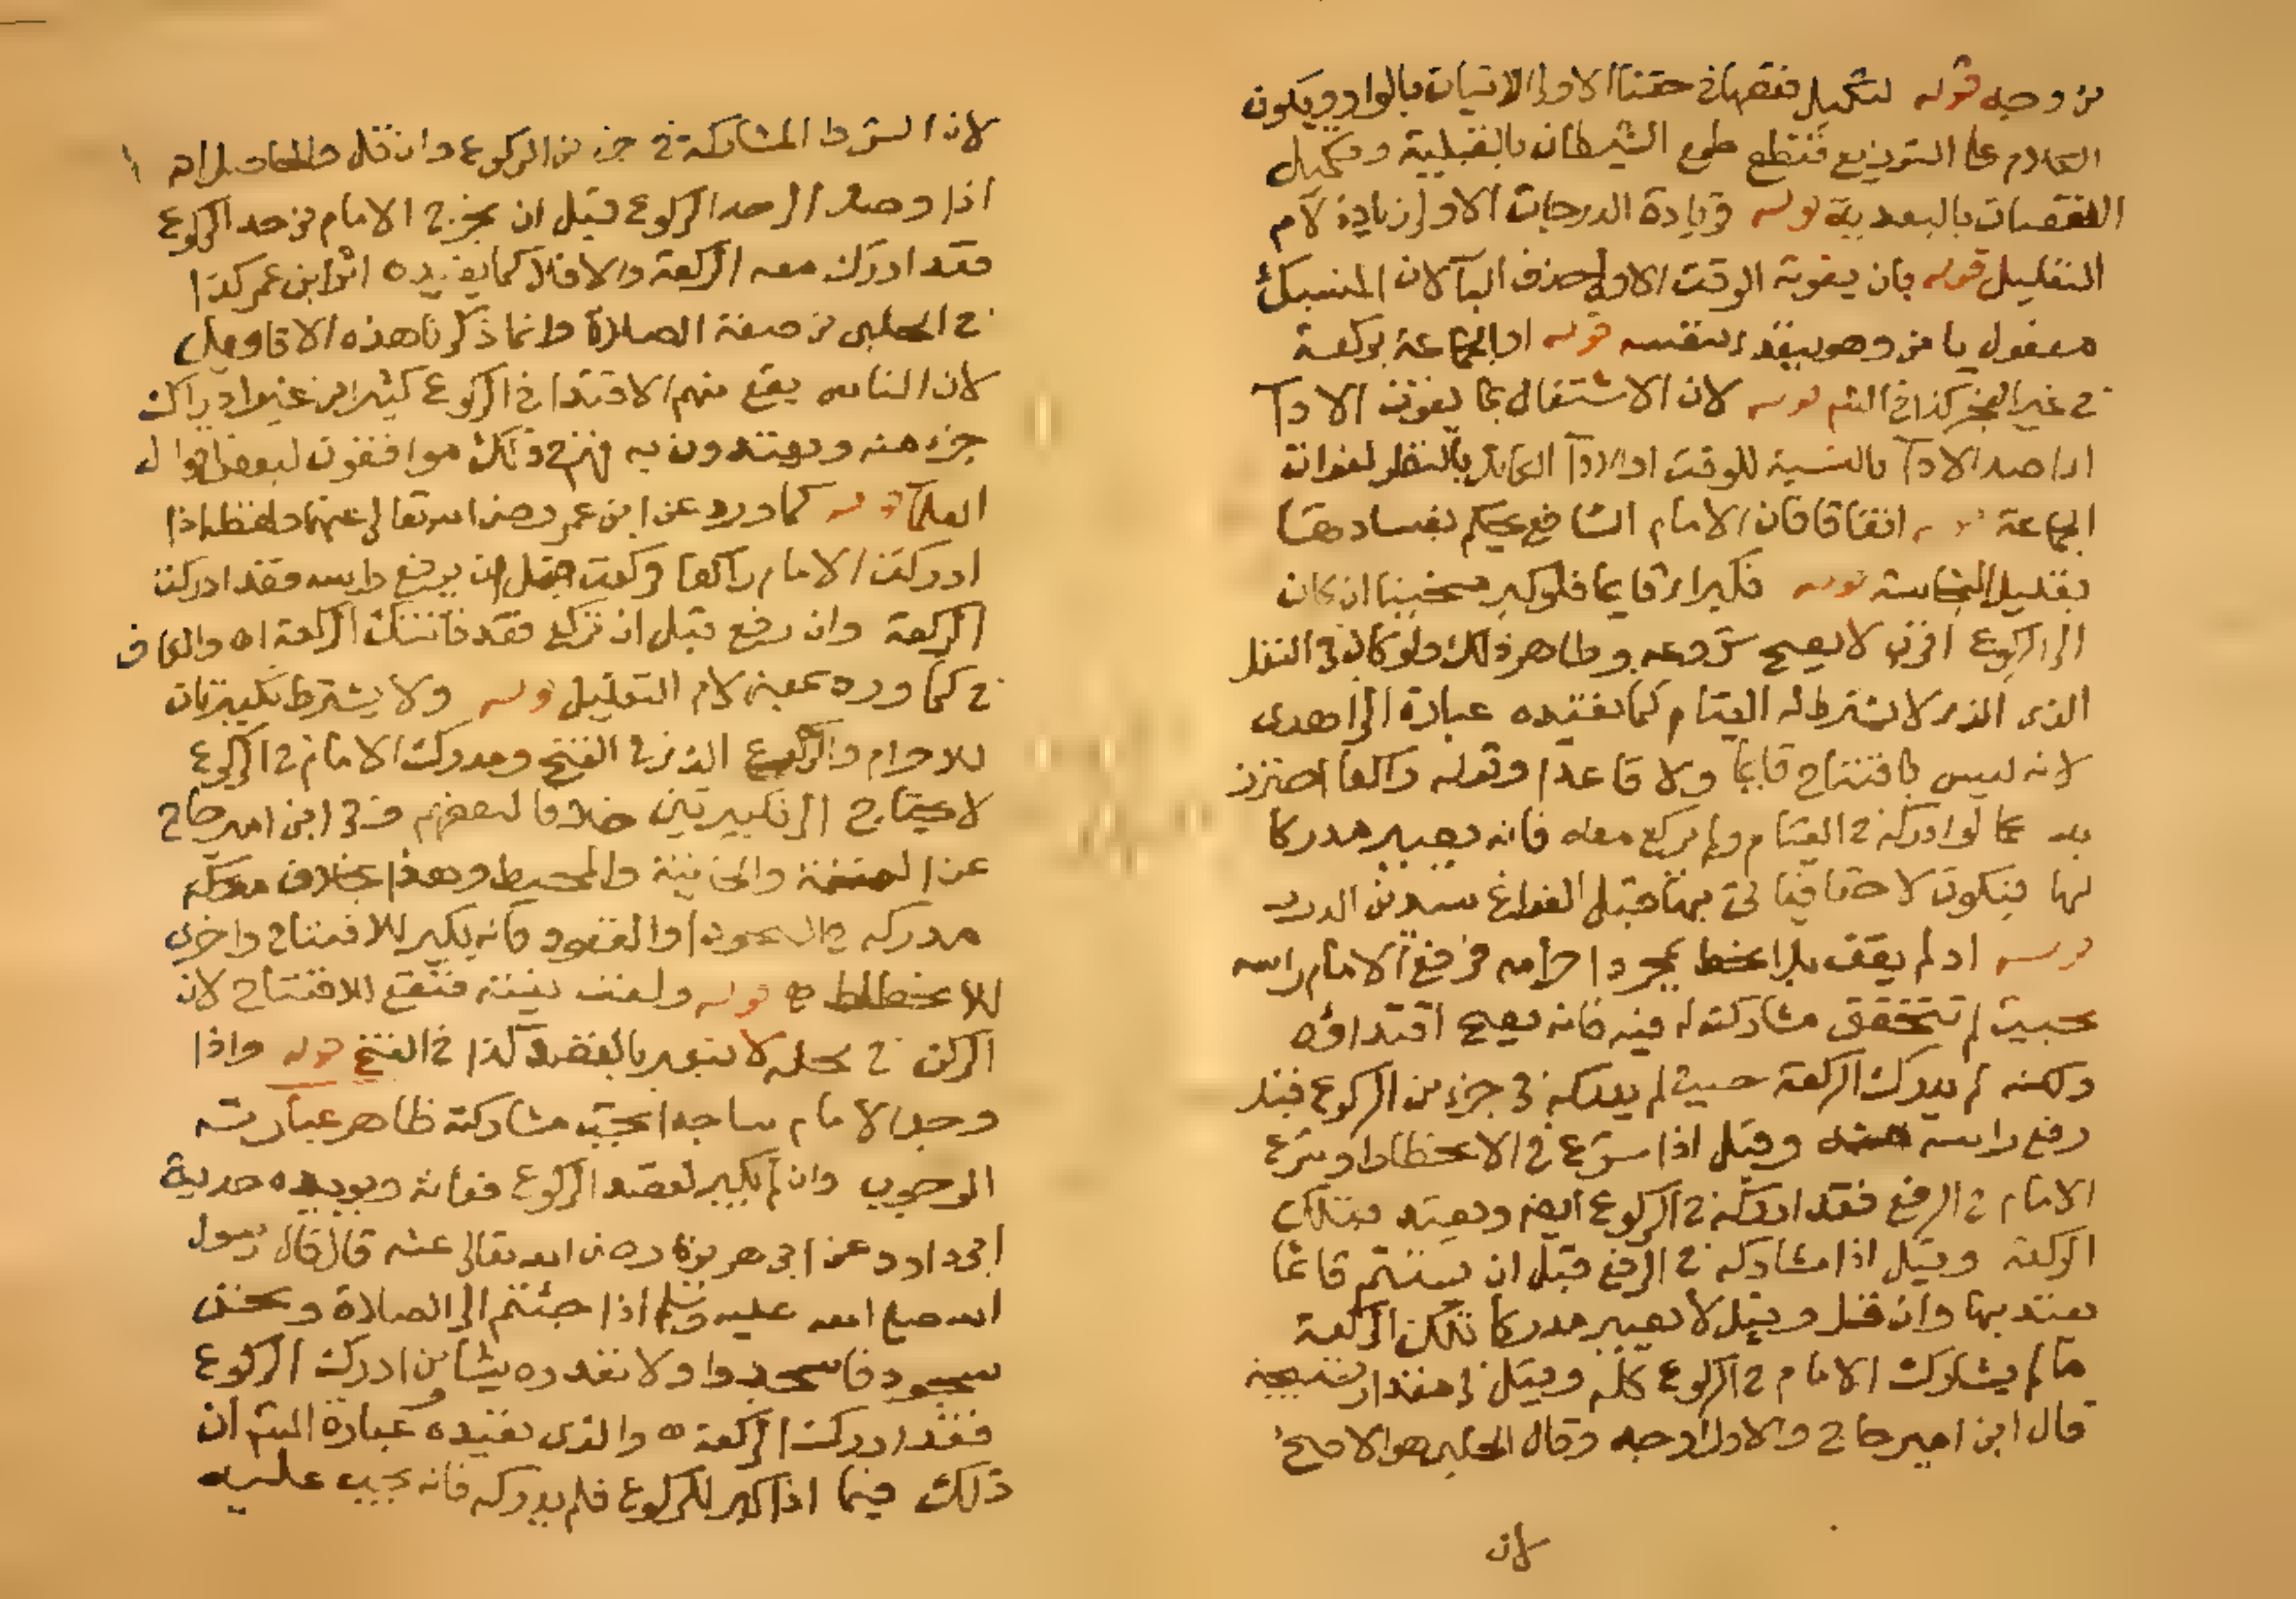 من وجه قوله لتكميل نقصها في حقنا الاولى الاتيان بالواو ويكون
الكلام على التوزيع فنقطع طمع الشيطان بالقبلية وتكميل
النقصان بالبعدية قوله وزيادة الدرجات الاولى زيادة لام
التعليل قوله بان يفوته الوقت الاولى حذف البآ لان المنسبك
مفعول يا من وهو بنفد بنفسه قوله او الجماعة بركعة
في غير الفجر كذا في الشم قوله لان الاشتغال بما يفوت الادآ
اداصد الادآ بالنسبة للوقت او الادآ الكامل بالنظر لفوات
الجماعة قوله اتفاقا فان الامام الشافعي يحكم بفسادها
بقليل النجاسة قوله فكبر اى قايما فلو كبر منحنيا ان كان
الى الركوع اقرب لا يصح شروعه وظاهر ذلك ولو كان في النفل
الذى الذى لا يشترط له القيام كما تفيده عبارة الزاهدى
لانه ليس بافتتاح قايما ولا قاعدا وقوله راكعا احترز
به عما لو ادركه في القيام ولم يركع معه فانه يصير مدركا
لها فيكون لاحقا فياتى بها قبل الفراغ سيد عن الدرر
قوله او لم يقف بل انحط بمجرد احرامه فرفع الامام راسه
بحيث لم تتحقق مشاركته له فيه فانه يصح اقتداؤه
ولكنه لم يدرك الركعة حيث لم يدركه في جزء من الركوع قبل
رفع راسه منه وقيل اذا شرع في الانحطاط وشرع
الامام في الرفع فقد ادركه في الركوع ايضا ويعتد بتلك
الركعة وقيل اذا شاركه في الرفع قبل ان يستتم قائما
يعتد بها وان قل وقيل لا يصير مدركا تلك الركعة
ما لم يشارك الامام في الركوع كله وقيل في مقدار تسبيحة
قال ابن امير حاج والاول اوجه وقال الحلبى هو الاصح
لان
لان الشرط المشاركة في جزء من الركوع وان قل والحاصل انه
اذا وصل الى حد الركوع قبل ان يخرج الامام من حد الركوع
فقد ادرك معه الركعة والا فلا كما يفيده اثر ابن عمر كذا
في الحلبى من صفة الصلاة وانما ذكرنا هذه الاقاويل
لان الناس يقع منهم الاقتدا في الركوع كثيرا من غير ادراك
جزء منه ويعتدون به فهم في ذلك موافقون لبعض اقوال
العلمآ قوله كما ورد عن ابن عمر رضى الله تعالى عنهما ولفظه اذا
ادركت الامام راكعا فركعت قبل ان يرفع راسه فقد ادركت
الركعة وان رفع قبل ان تركع فقد فاتتك الركعة اه والكاف
في كما ورد بمعنى لام التعليل قوله ولا يشترط تكبيرتان
للاحرام والركوع الذى في الفتح ومدرك الامام في الركوع
لا يحتاج الى تكبيرتين خلافا لبعضهم وفي ابن امير حاج
عن والخانية والمحيط وهذا بخلاف
مدركه في السجود او القعود فانه يكبر للافتتاح واخرى
للانحطاط اه قوله ولغت نيته فتقع للافتتاح لان
الركن في محله لا يتغير بالقصد كذا في الفتح قوله واذا
وجد الامام ساجدا تجب مشاركته ظاهر عبارته
الوجوب وان لم يكبر لقصد الركوع ففاته ويويده حديث
ابى داود عن ابى هريرة رضى الله تعالى عنه قال قال رسول
الله صلى الله عليه وسلم اذا جئتم الى الصلاة ونحن
سجود فاسجدوا ولا تعدوه شيئا من ادرك الركوع
فقد ادرك الركعة اه والذى تفيده عبارة الشم ان
ذلك فيما اذا كبر للركوع فلم يدركه فانه يجب عليه